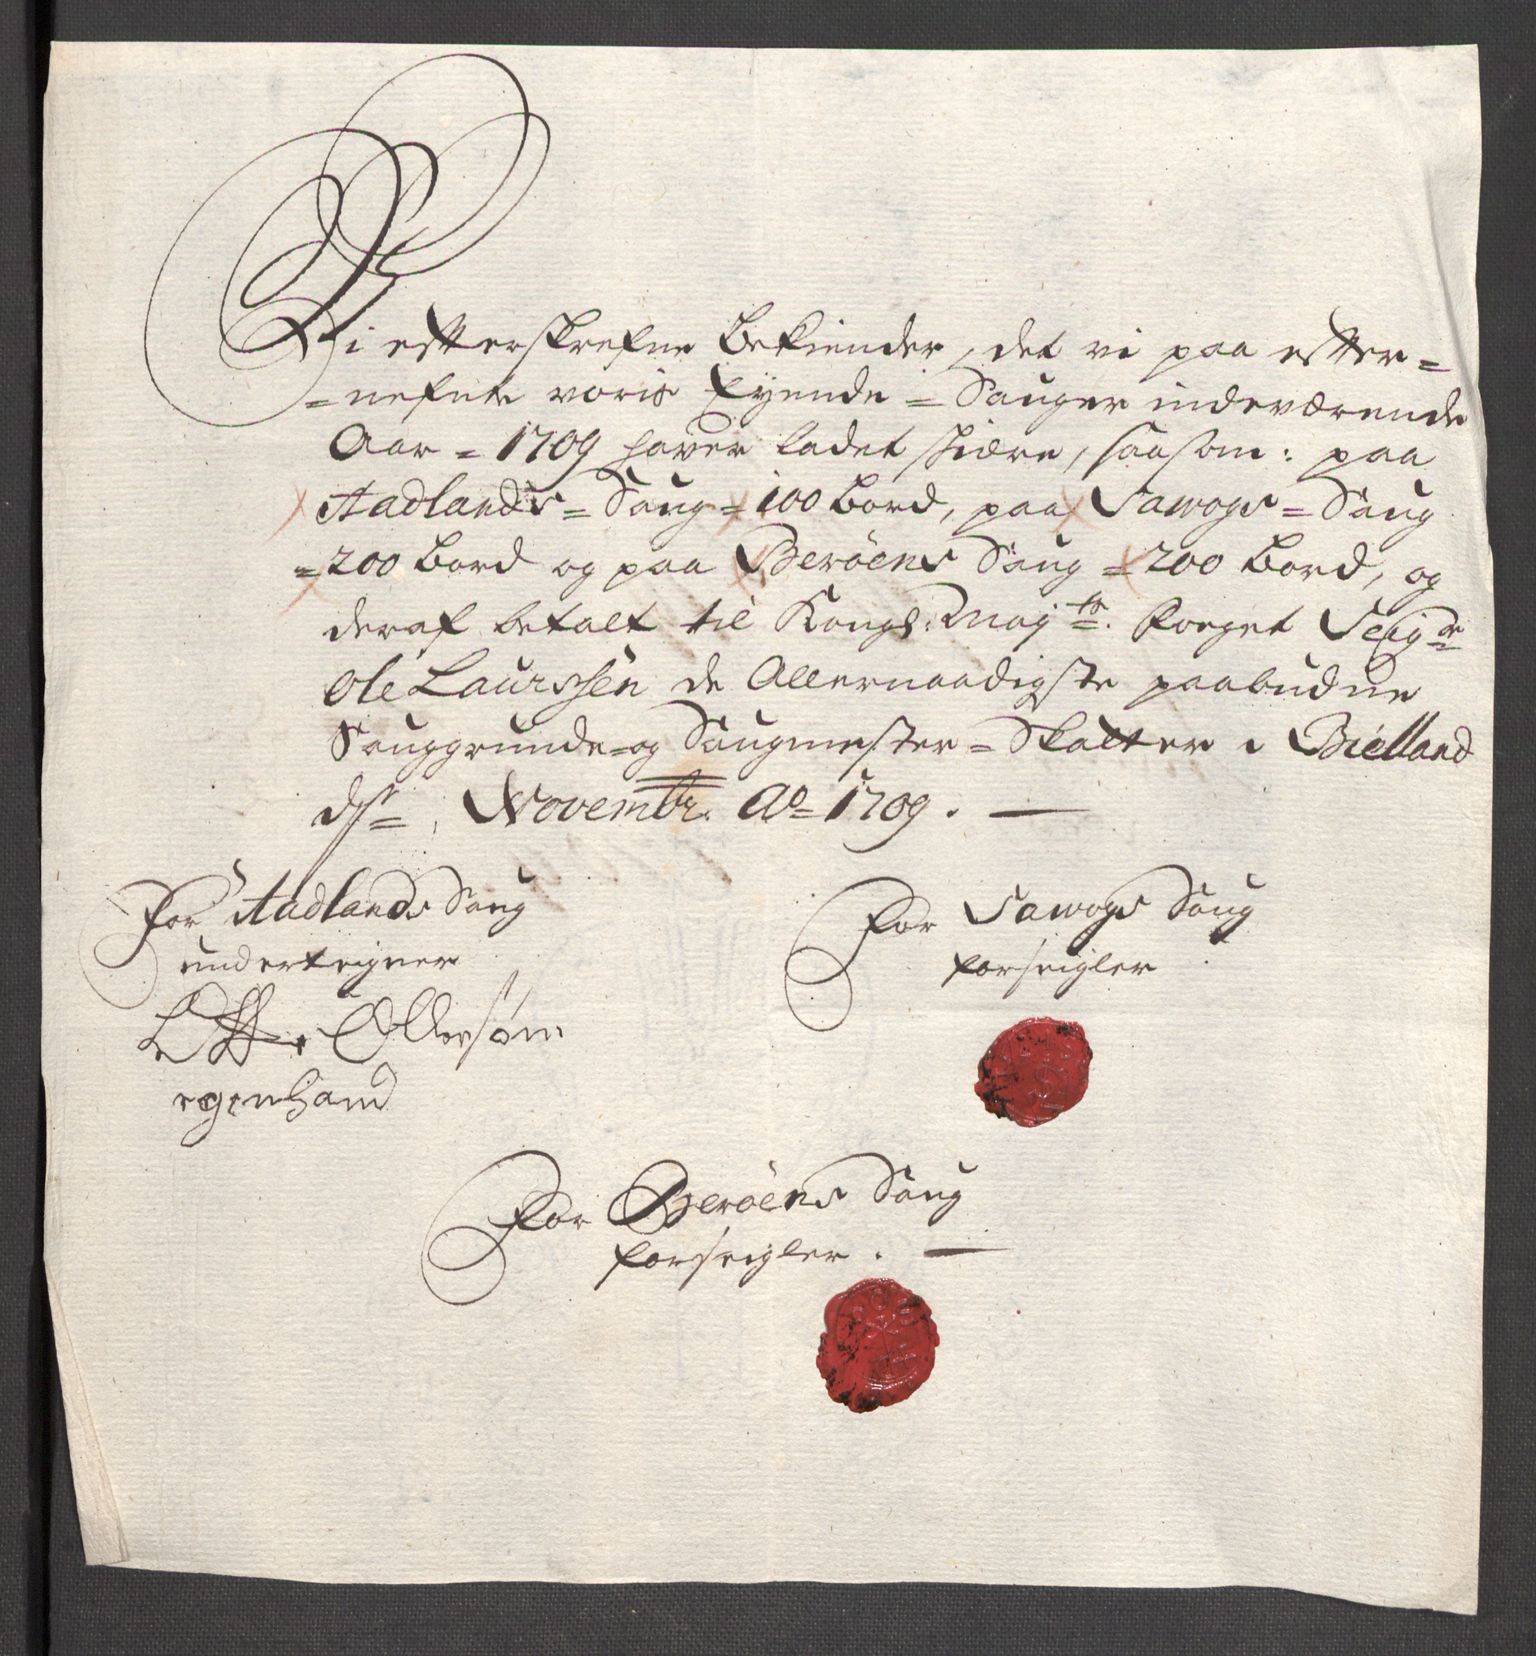 Vi efterskrefne bekiender, det vi paa efter-
=nefnte voris Eyende = Sauger indeværende
Aar = 1709 haver ladet skiære, saasom: paa
Aadlands = Saug = 100 bord, paa Sawogs = Saug
=200 bord og paa Berøens Saug = 200 bord, og
deraf betalt til Kongl: Maytz. Foeget Seigr
Ole Laurssen de Allernaadigste paabudne
Sauggrunde- og Saugmester = Skatter i Bielland
ds = Novembr. Ao 1709. —
For Aadlands Saug
underteigner
Ollersøn
egenhand
For Sawogs Saug
forseigler
For Berøens Saug
forseigler. —